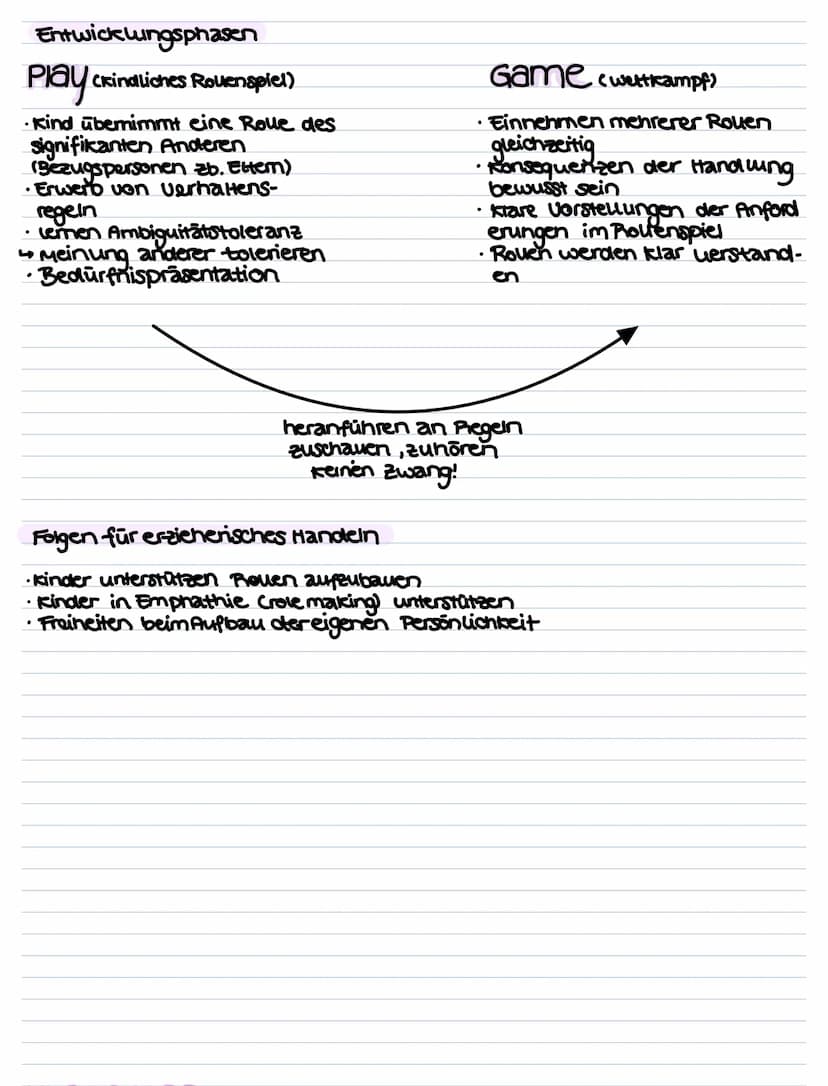 Entwicklungsphasen
Play (kindliches Rollenspiel)
· Kind übernimmt eine Rolle des
signifikanten Anderen
(Bezugspersonen zb. Eltern)
· Erwerb von Verhaltens-
regeln
· lernen Ambiguitätstoleranz
↳ Meinung anderer tolerieren
· Bedürfnispräsentation
Game (Wettkampf)
· Einnehmen mehrerer Rollen
gleichzeitig
· Konsequenzen der Handlung
bewusst sein
· klare Vorstellungen der Anford
erungen im Rollenspiel
· Rollen werden klar verstand-
en
heranführen an Regeln
zuschauen, zuhören
keinen Zwang!
Folgen für erzieherisches Handeln
· Kinder unterstützen Rollen aufzubauen
· Kinder in Emphathie (role making) unterstützen
· Freiheiten beim Aufbau der eigenen Persönlichkeit